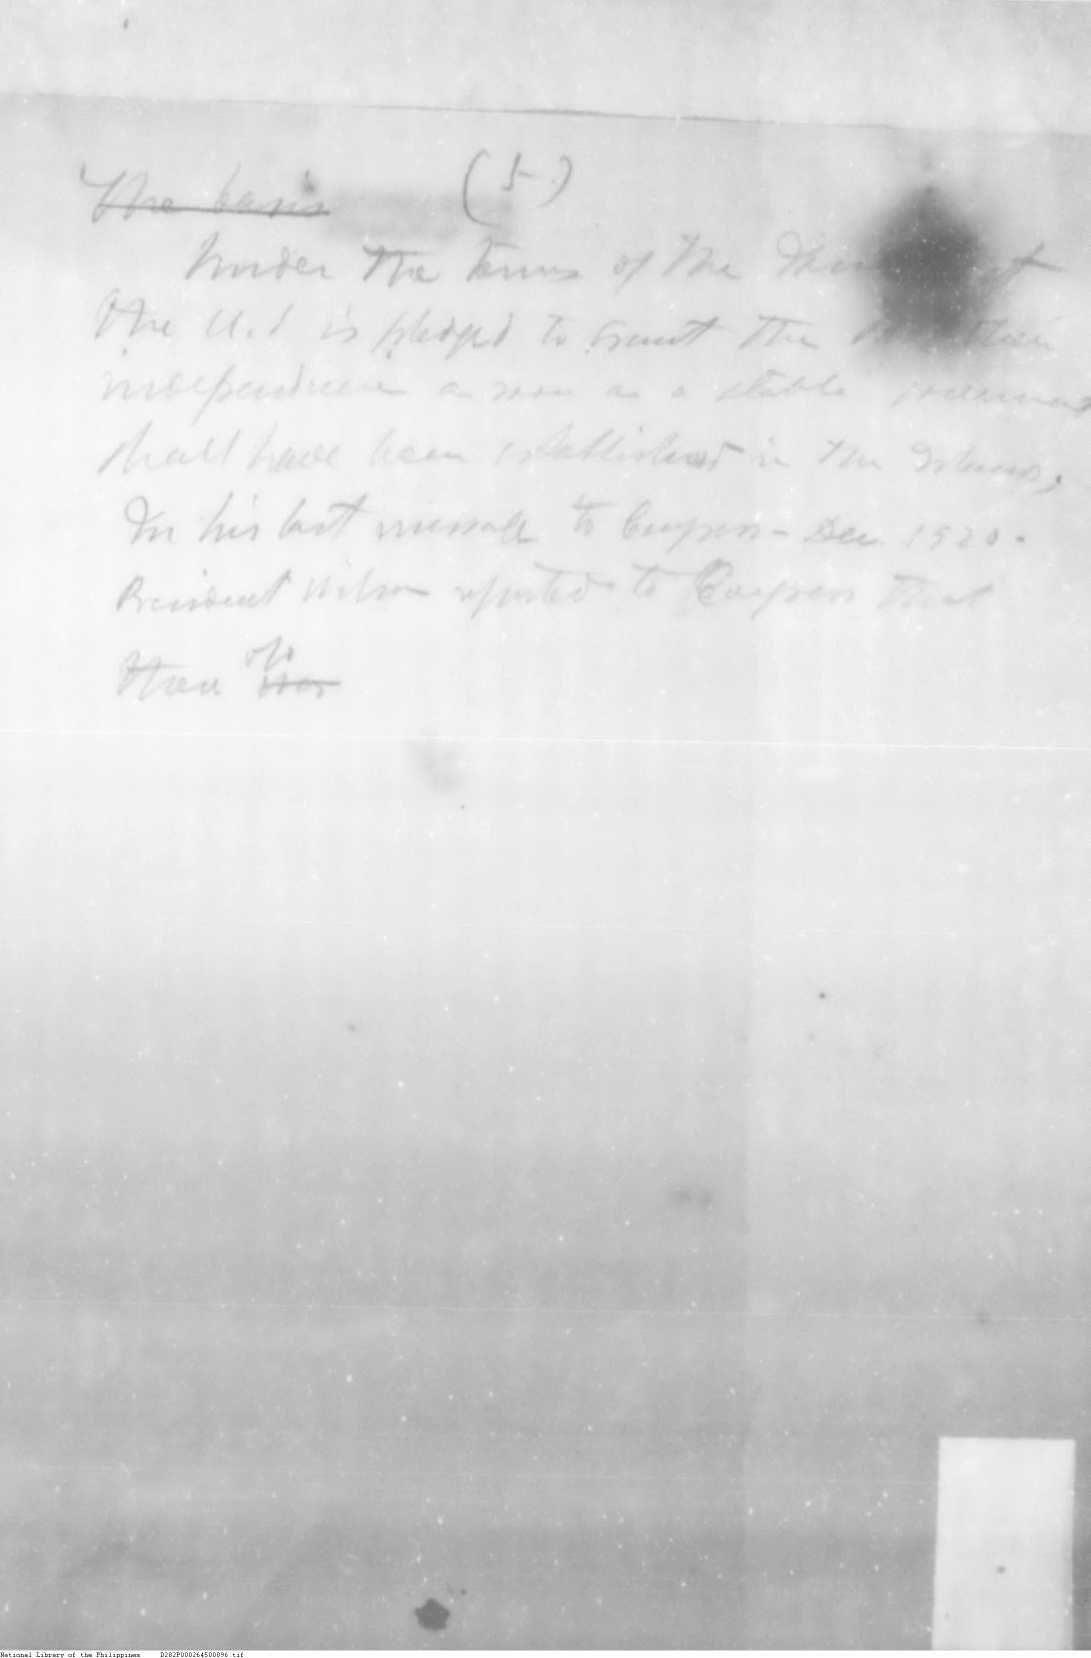 (5.)
The basis
Under the terms of the
the U.S is pledged to grant the
independence as soon as a stable government
shall have been established in the Islands,
In his last message to Congress - Dec. 1920 -
President Wilson reported to Congress that
there
National Library of the Philippines D282P000264500096.tif